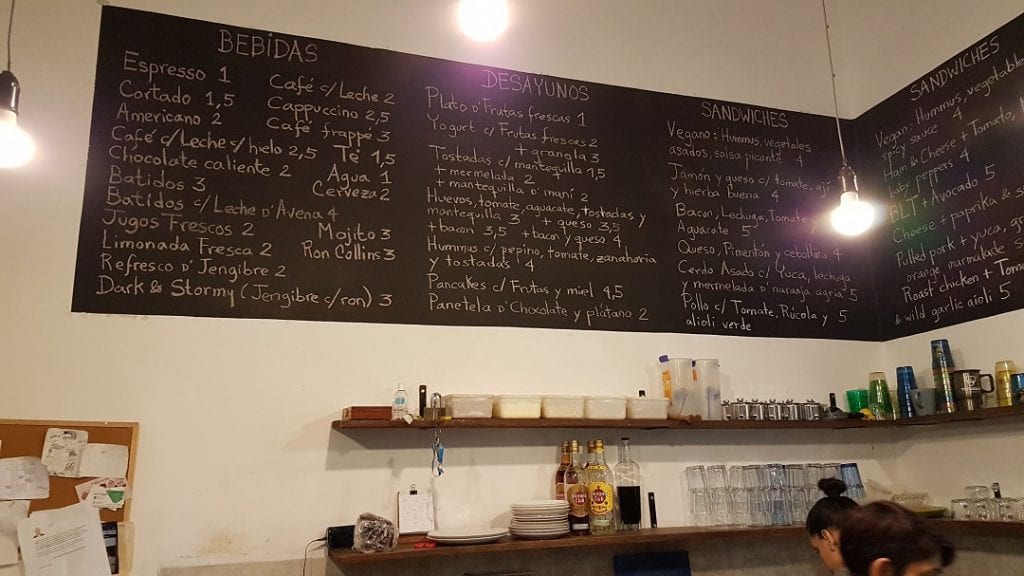 BEBIDAS
Espresso 1
Cortado 1,5
Americano 2
Café c/Leche y hielo 2,5
Chocolate caliente 2
Batidos 3
Batidos c/Leche D'Avena 4
Jugos Frescos 2
Limonada Fresca 2
Refresco D'Jengibre 2
Dark & Stormy (Jengibre c/ron) 3
Café c/Leche 2
Cappuccino 2,5
Café frappé 3
Té 1,5
Agua 1
Cerveza 2
Mojito 3
Ron Collins 3
DESAYUNOS
Plato D'Frutas frescas 1
Yogurt c/Frutas frescas 2
+ granola 3
Tostadas c/mantequilla 1,5
+ mermelada 2
+ mantequilla D'maní 2
Huevos, tomate, aguacate, tostadas y
mantequilla 3 + queso 3,5
+ bacon 3,5 + bacon y queso 4
Hummus c/pepino, tomate, zanahoria
y tostadas 4
Pancakes c/Frutas y miel 4,5
Panetela D'Chocolate y platano 2
SANDWICHES
Vegano: Hummus, vegetales
asados, salsa picante 4
Jamón y queso c/tomate, aji
y hierba buena 4
Bacon, Lechuga, Tomate
Aguacate 5
Queso, Pimentón y cebollino 4
Cerdo Asado c/Yuca, lechuga
y mermelada D'naranja agria 5
Pollo c/Tomate, Rúcola y 5
alioli verde
SANDWICHES
Vegan: Hummus, vegetable
spicy sauce 4
Ham & Cheese + Tomato,
baby peppers 4
BLT + Avocado 5
Cheese + paprika &
Pulled pork + yuca,
orange marmalade
Roast chicken + Tom
& wild garlic aioli 5
Havana
Club